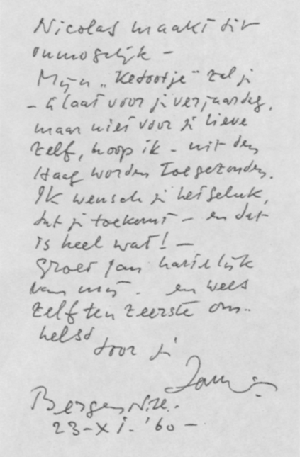 Nicolas maakt dit
onmogelijk –
Mijn "Ketootje" zal je
– à laat voor je verjaardag,
maar niet voor je lieve
zelf, hoop ik – uit den
Haag worden toegezonden.
Ik wensch je het geluk,
dat je toekomt – en dat
is heel wat! –
Groet Jan hartelijk
van mij. en wees
zelf ten zeerste om-
helsd
door je
Bergen N.H.
23-XI-'60 –